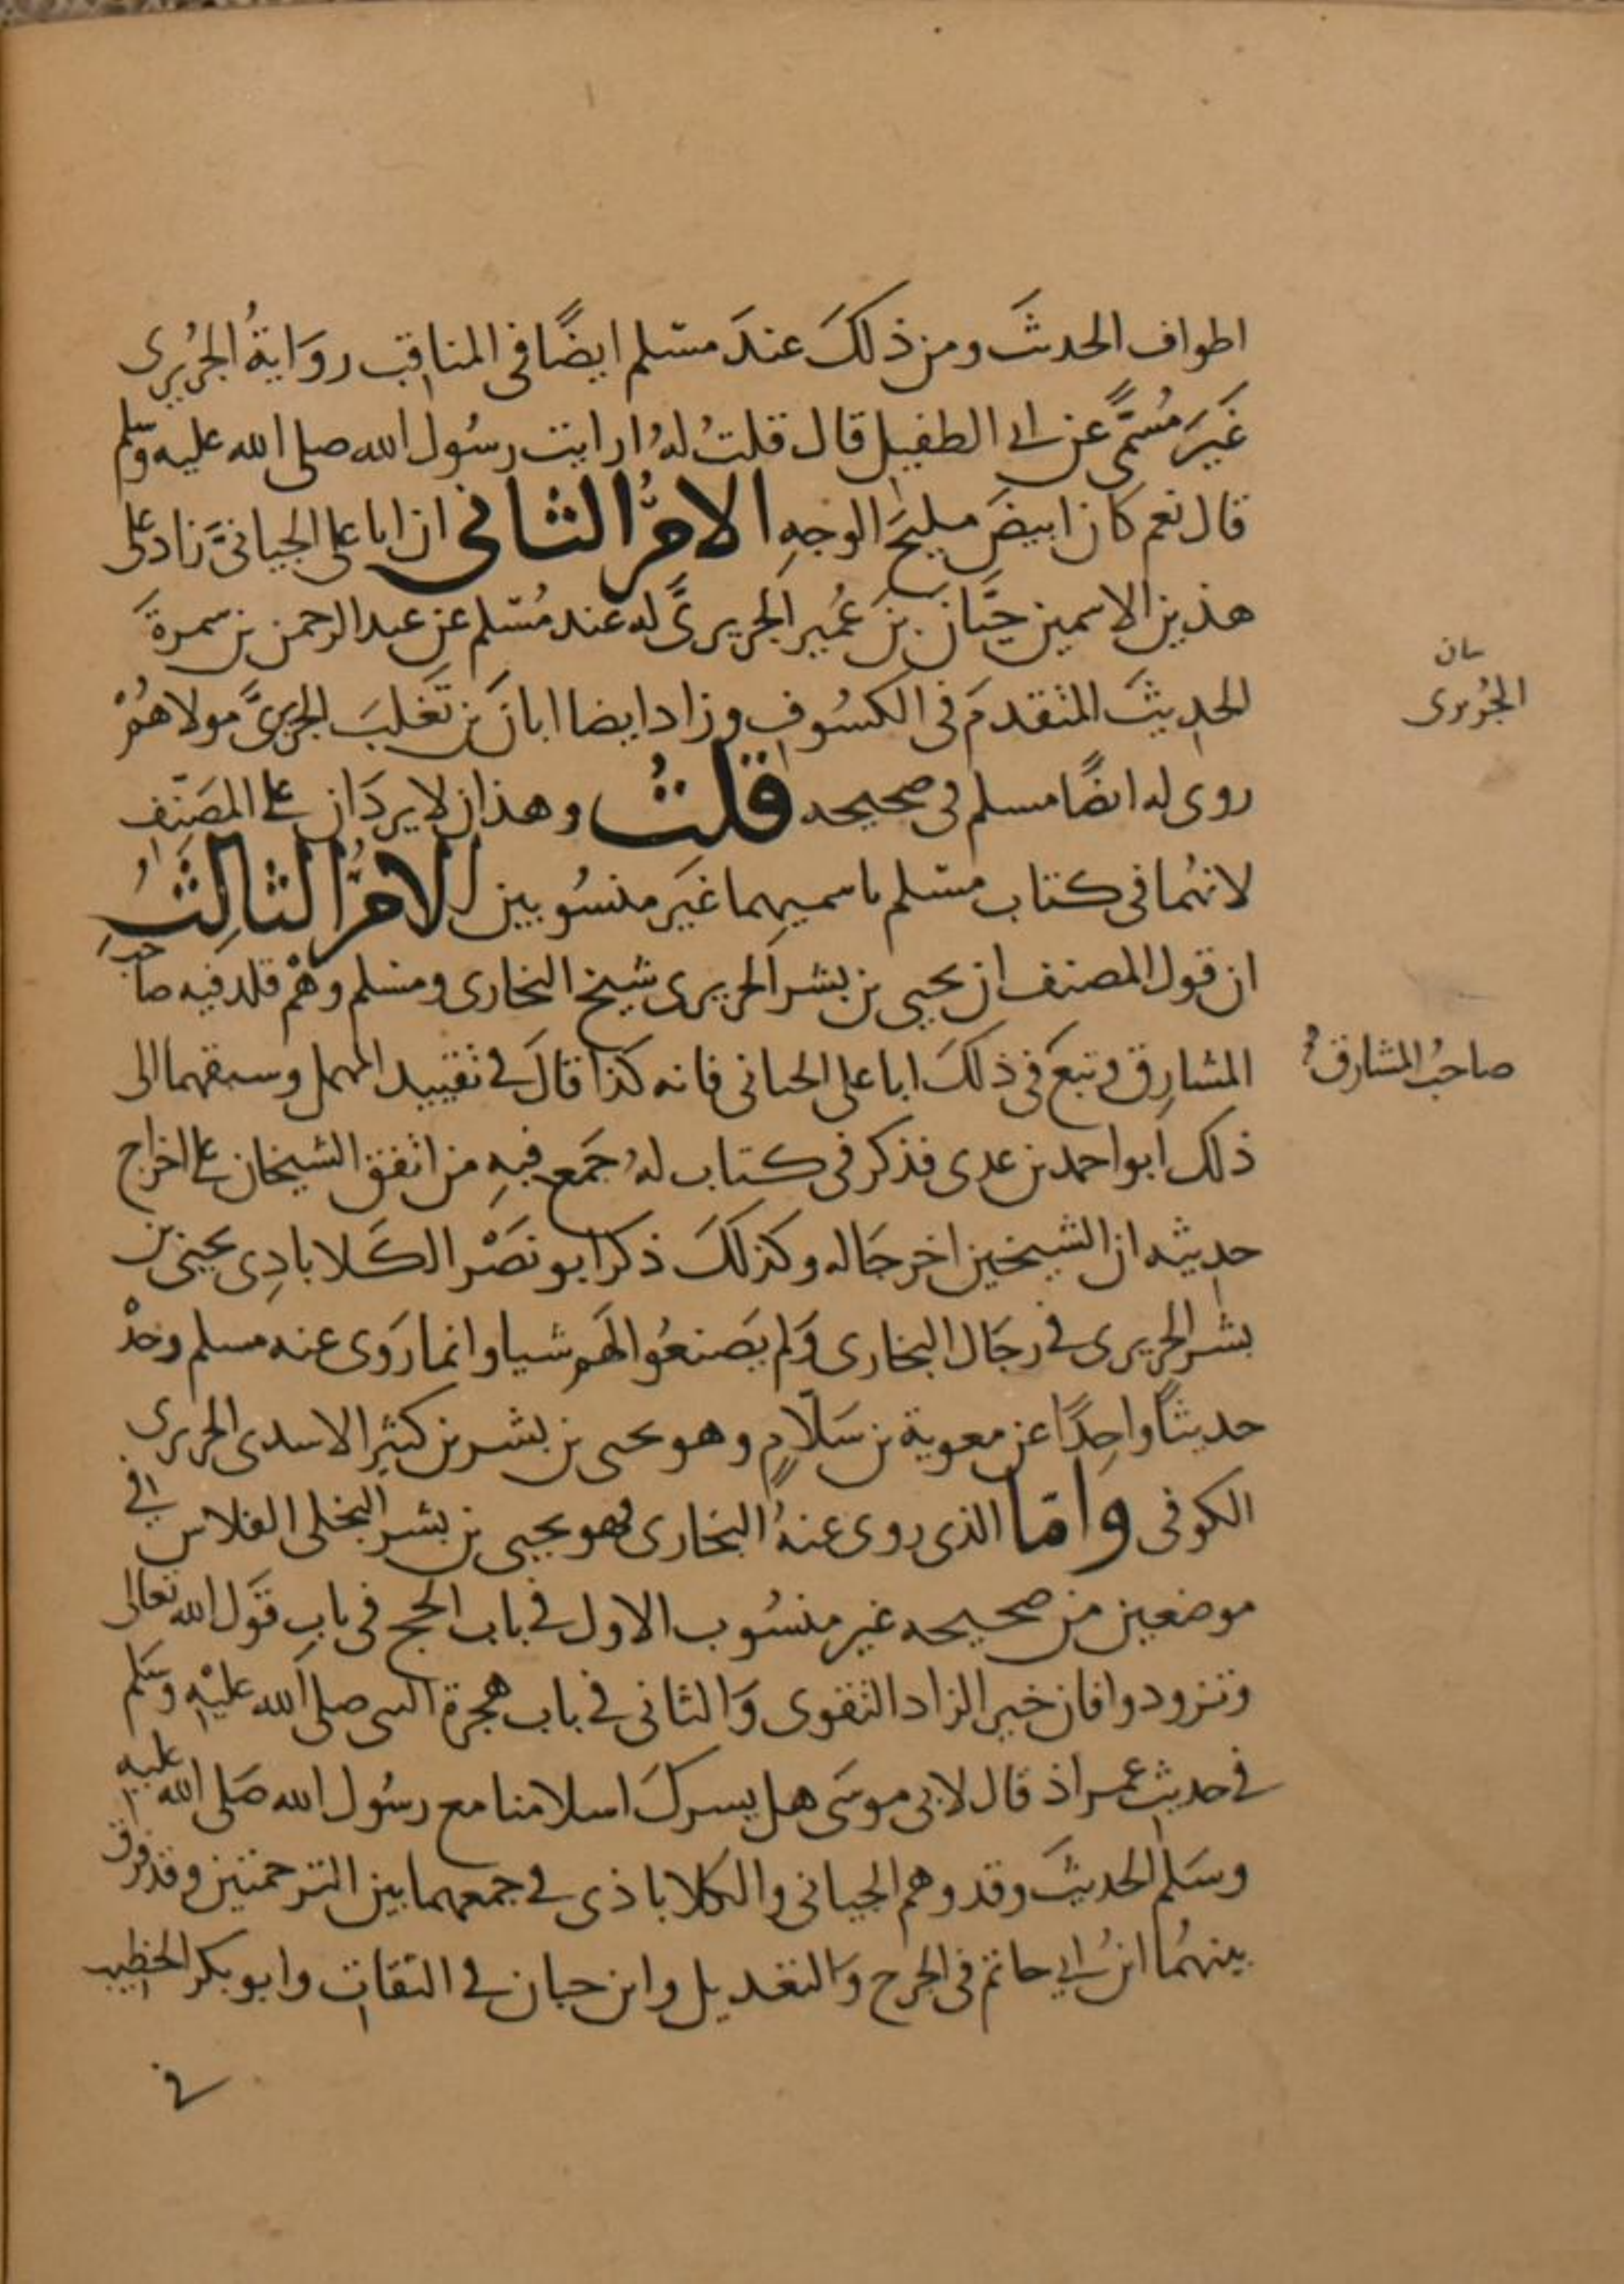 اطواف الحديثَ ومن ذلكَ عندَ مسلم ايضًا في المناقب روَايةُ الجُرَيري
غَيرَ مُسَمًّى عن ابي الطفيل قال قلتُ لهُ ارايت رسُول الله صلى الله عليه وسلم
قال نعم كان ابيضَ مليحَ الوجهِ الامرُ الثاني ان ابا علي الجيانيَّ زاد على
هذين الاسمين حَيَّانَ بنَ عُمَير الجريريَّ له عند مُسلم عن عبد الرحمن بن سمرةَ
الحديثَ المتقدمَ في الكسُوف وزاد ايضا ابانَ بن تَغلبَ الجريريَّ مولاهُمْ
روى له ايضًا مسلم في صحيحه قلتُ وهذان لا يردَان على المصَنّف
لانهُما في كتاب مسلم باسميهما غيرَ منسُوبين الامرُ الثالِثُ
ان قول المصنف ان يحيى بن بشر الحريري شيخ البخاري ومسلم وهْم قلد فيه صاحب
المشارِق وتبعَ في ذلكَ ابا علي الجياني فانه كذا قالَ في تقييد المهمل وسبقهما الى
ذلك ابو احمد بن عدي فذكر في كتاب لهُ جَمع فيهِ من اتفق الشيخان على اخراج
حديثه ان الشيخين اخرجَا له وكذلكَ ذكرَ ابو نصَرْ الكَلابادِي يحيى بن
بشر الحريري في رجَال البخاري وَلم يَصنعُوا لهَم شيا وانما روَى عنه مسلم وحدْه
حديثاً واحِدًا عن معوية بن سَلّامٍ وهو يحيى بن بشر بن كثيرِ الاسدي الحريري
الكوفي وَامّا الذي روى عنهُ البخاري فهو يحيى بن بشر البَخلي الفلاس في
موضعين من صحيحه غير منسُوب الاول في باب الحج في بابِ قَول الله تعالى
وتزودوا فان خير الزاد التقوى وَالثاني في باب هجرة النبي صلى الله عليْهِ وسَلم
في حديث عمر اذ قال لابي موسَى هل يسركَ اسلامنا مع رسُول الله صَلى الله عليه
وسَلم الحديثَ وقد وهم الجياني والكلاباذي في جمعهما بين الترجمتين وقد فرق
بينهُما ابنُ ابي حاتم في الجرح وَالتعديل وابن حبان في الثقات وابو بكر الخطيب
في
بيان
الجُرَيري
صاحبُ المشارق